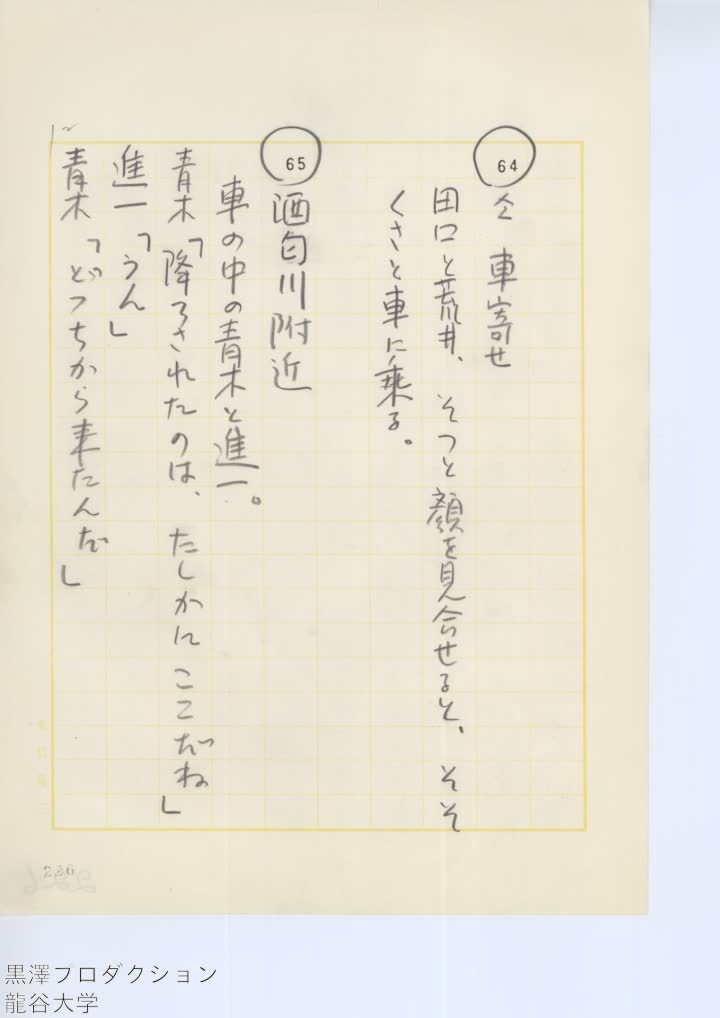 64
仝 車寄せ
田口と荒井、そつと顔を見合せると、そそ
くさと車に乗る。
65
酒匂川附近
車の中の青木と進一。
青木「降ろされたのは、たしかにここだね」
進一「うん」
青木「どつちから来たんだ」
236
黒澤プロダクション
龍谷大学